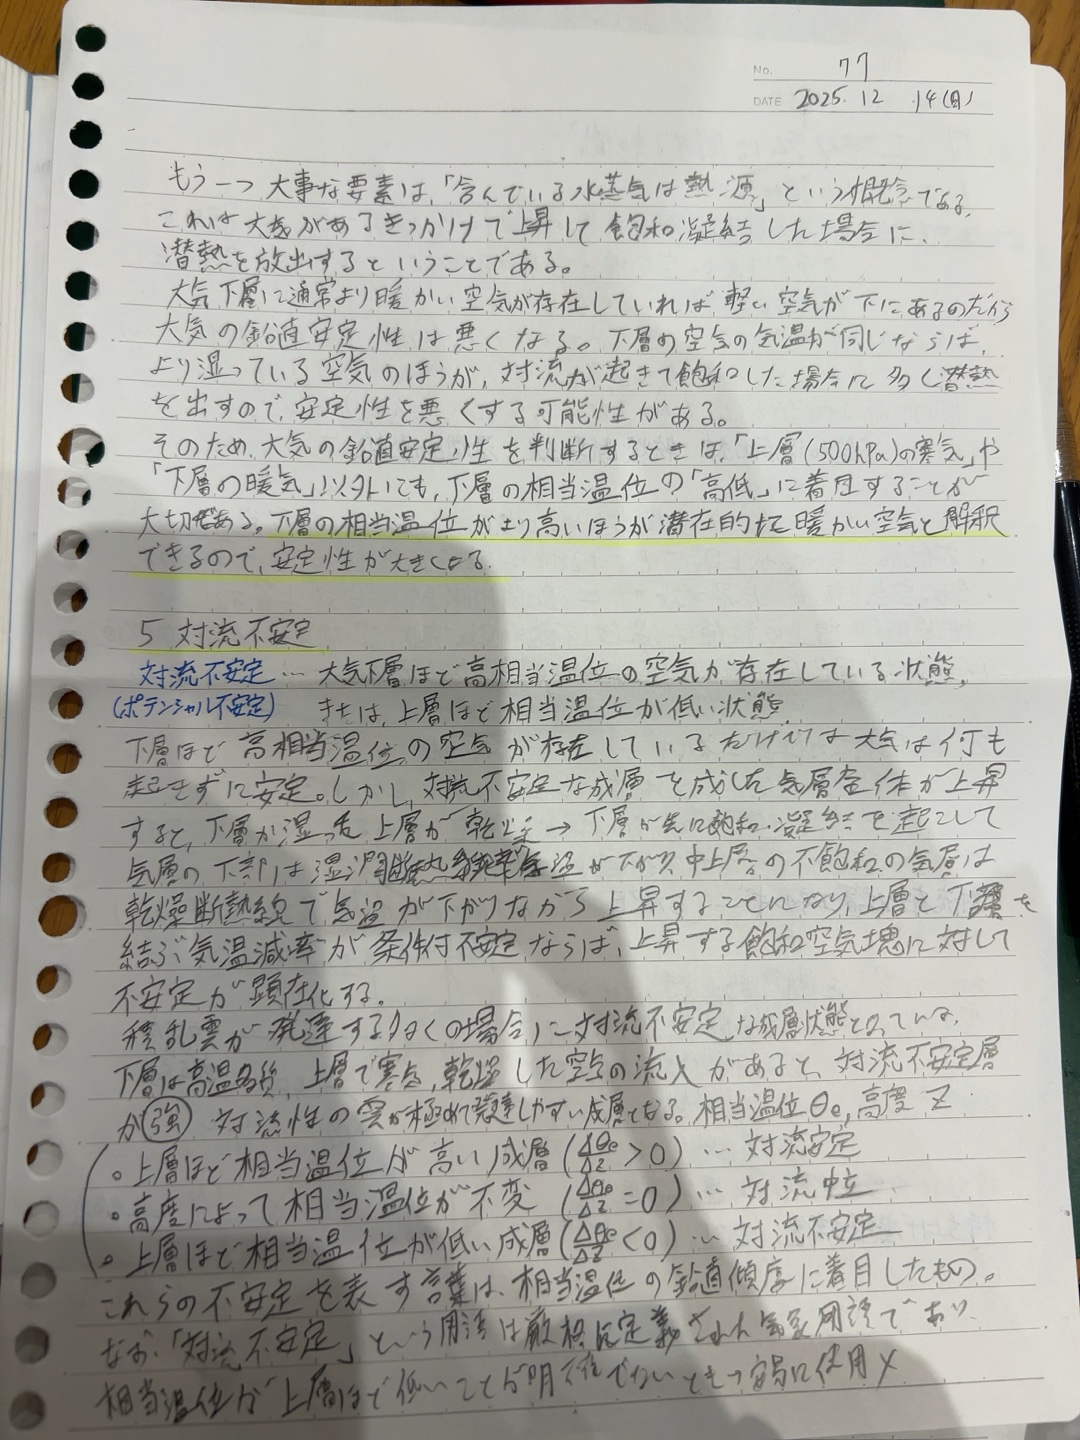 No. 77
DATE 2025. 12 14(日)
もう一つ大事な要素は、「含んでいる水蒸気は熱源」という概念である。
これは大気があるきっかけで上昇して飽和凝結した場合に、
潜熱を放出するということである。
大気下層に通常より暖かい空気が存在していれば軽い空気が下にあるのだから
大気の鉛直安定性は悪くなる。下層の空気の気温が同じならば、
より湿っている空気のほうが、対流が起きて飽和した場合に多く潜熱
を出すので、安定性を悪くする可能性がある。
そのため、大気の鉛直安定性を判断するときは、「上層(500hPa)の寒気」や
「下層の暖気」以外にも、下層の相当温位の「高低」に着目することが
大切である。下層の相当温位がより高いほうが潜在的に暖かい空気と解釈
できるので、安定性が大きくなる。
5 対流不安定
対流不安定 … 大気下層ほど高相当温位の空気が存在している状態。
(ポテンシャル不安定) または、上層ほど相当温位が低い状態
下層ほど高相当温位の空気が存在しているだけでは大気は何も
起きずに安定。しかし、対流不安定な成層を成した気層全体が上昇
すると、下層が湿っ 上層が乾燥 → 下層が先に飽和・凝結を起こして
気層の下部は湿潤断熱 気温が下がり、中上層の不飽和の気層は
乾燥断熱線で気温が下がりながら上昇することになり、上層と下層を
結ぶ気温減率が条件付不安定ならば、上昇する飽和空気塊に対して
不安定が顕在化する。
積乱雲が発達する多くの場合に対流不安定な成層状態となっている。
下層は高温多湿、上層で寒気、乾燥した空気の流入があると、対流不安定層
が強 対流性の雲が極めて発達しやすい成層となる。相当温位θe,高度Z
。上層ほど相当温位が高い成層(Δθe/ΔZ>0) … 対流安定
。高度によって相当温位が不変 (Δθe/ΔZ=0) … 対流中立
。上層ほど相当温位が低い成層(Δθe/ΔZ<0) … 対流不安定
これらの不安定を表す言葉は、相当温位の鉛直傾度に着目したもの。
なお、「対流不安定」という用語は厳格に定義された気象用語であり、
相当温位が上層ほど低いことが明確でないときつ安易に使用✗